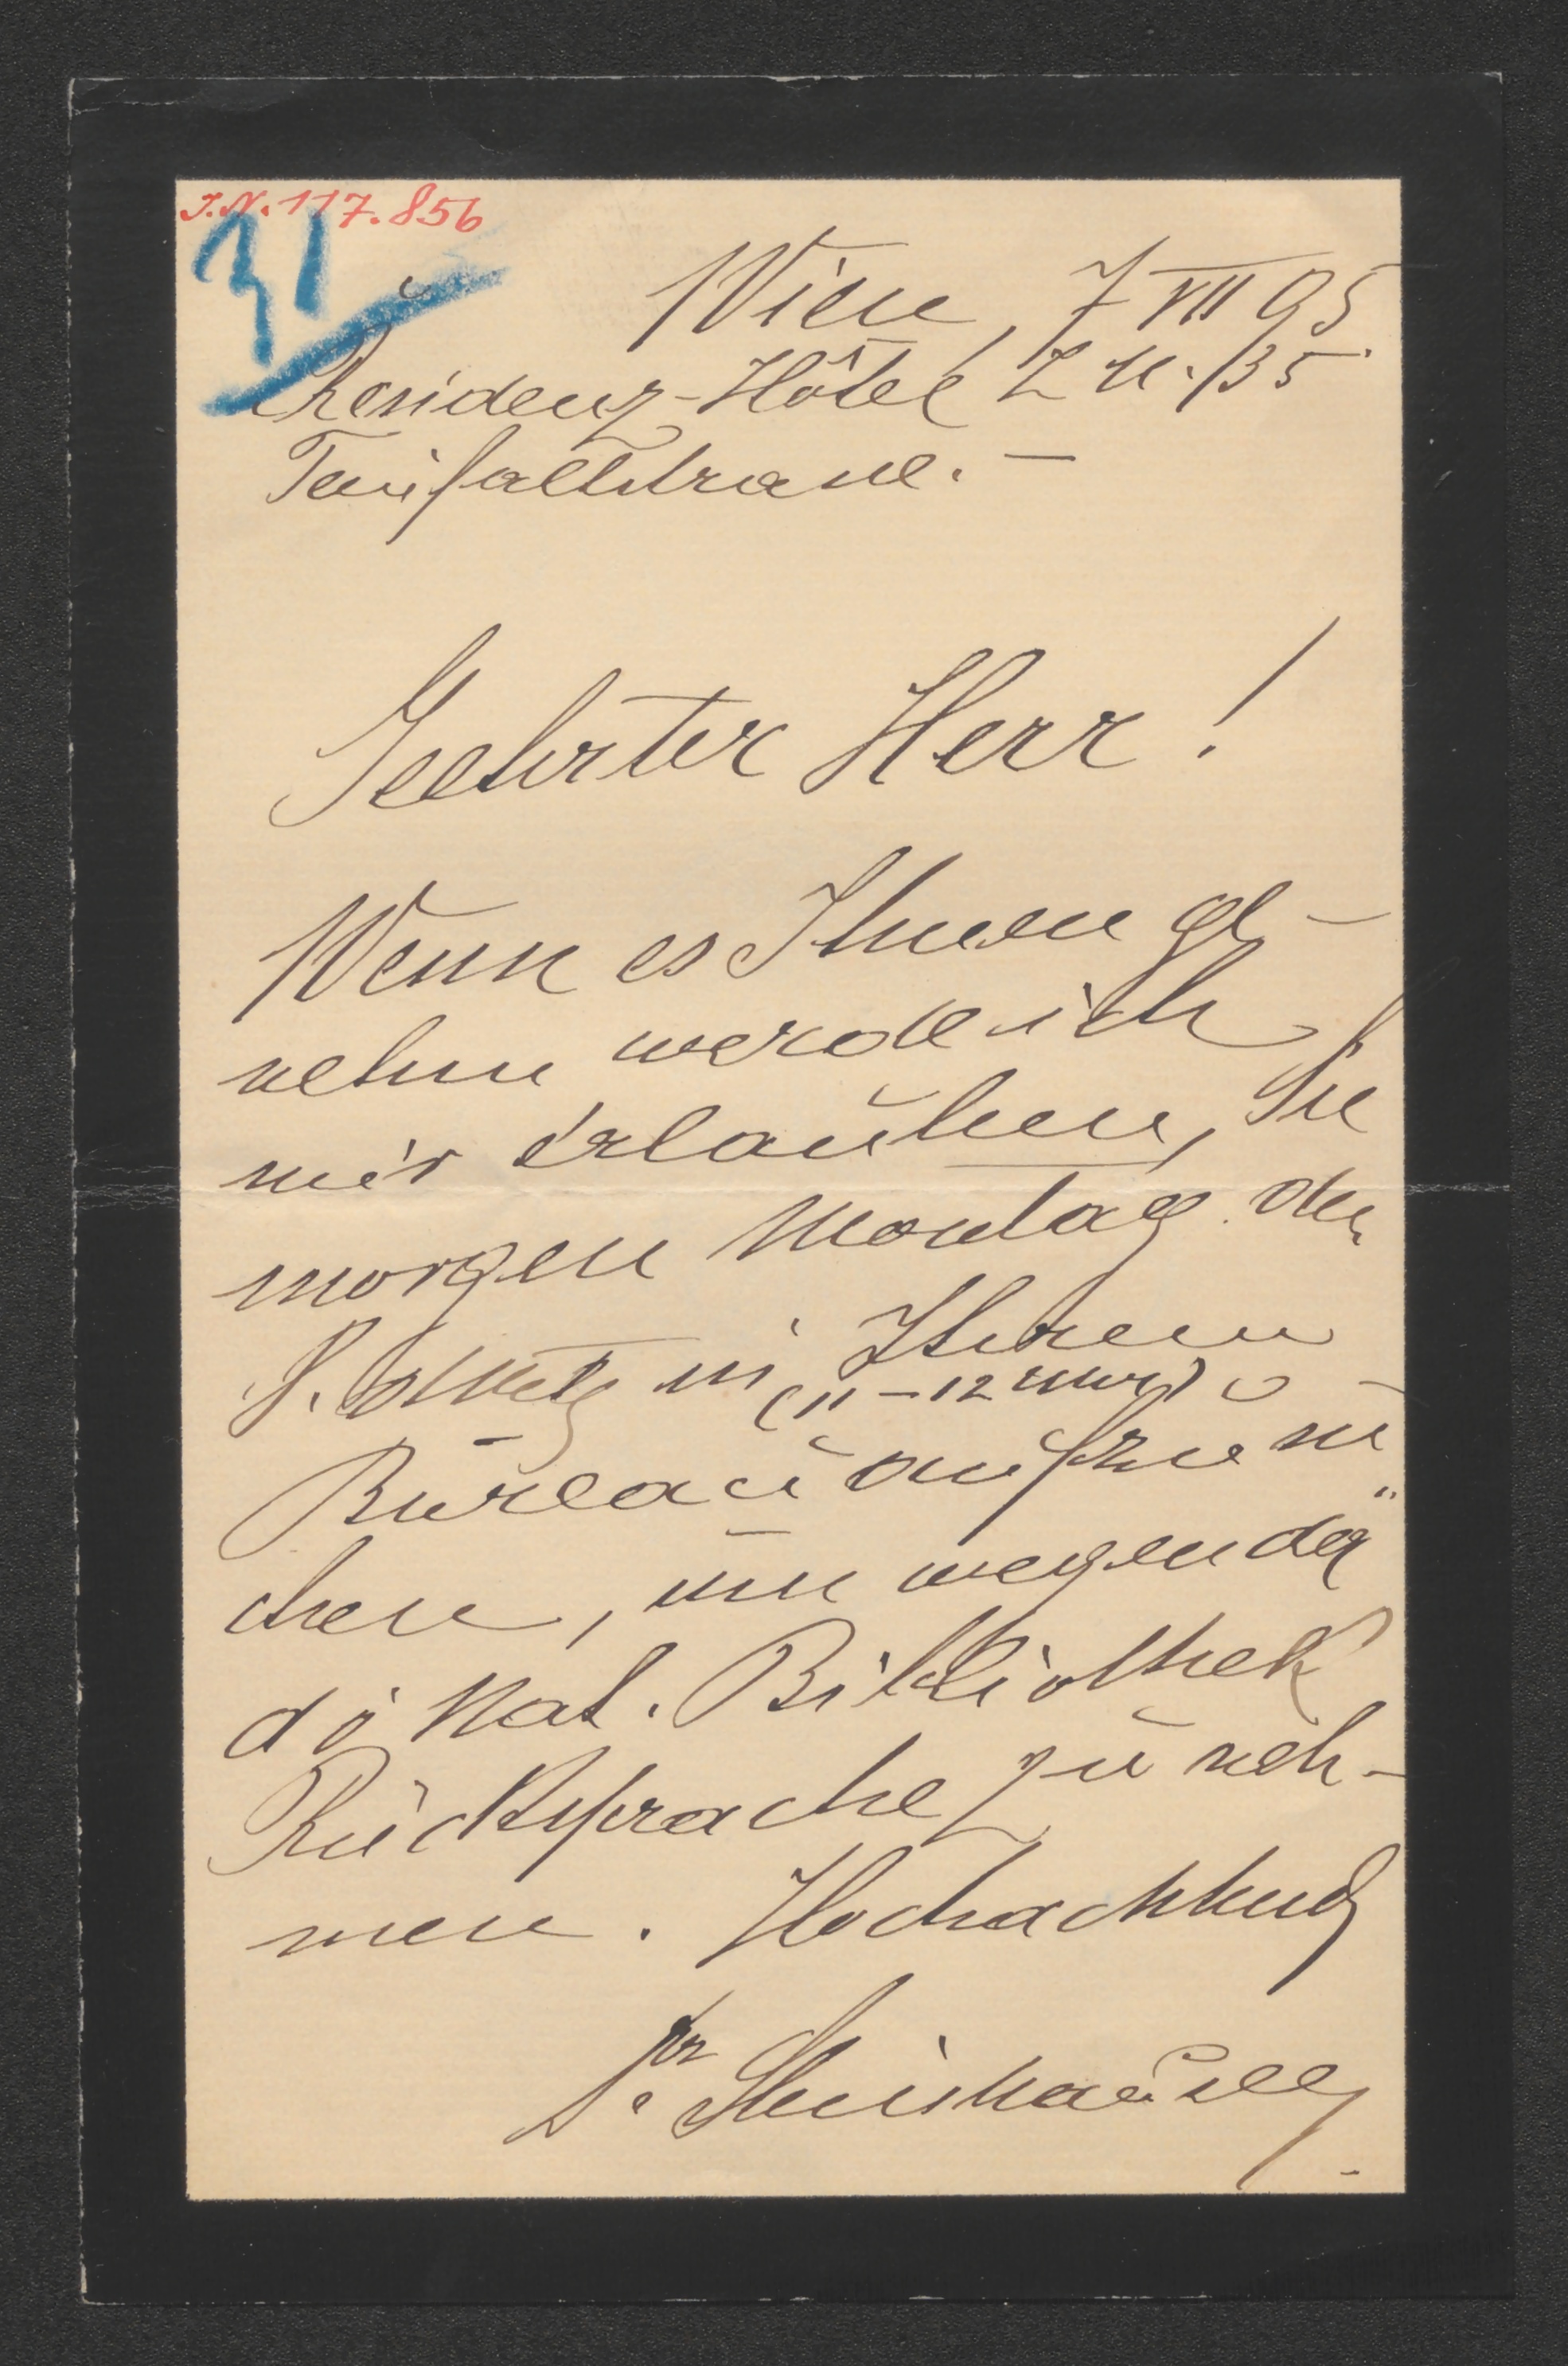 J.N. 117.856
31
Wien, 7 VII 95
Residenz-Hôtel Z 11./35
Teinfaltstrasse. —
Geehrter Herr!
Wenn es Ihnen ge-
nehm werde ich
mir erlauben, Sie
morgen Montag den
8. in Ihrem
(11–12 Uhr)
Bureau aufzusu-
chen, um wegen der
Nat. Bibliothek
Rücksprache zu neh-
men. Hochachtend
Dr